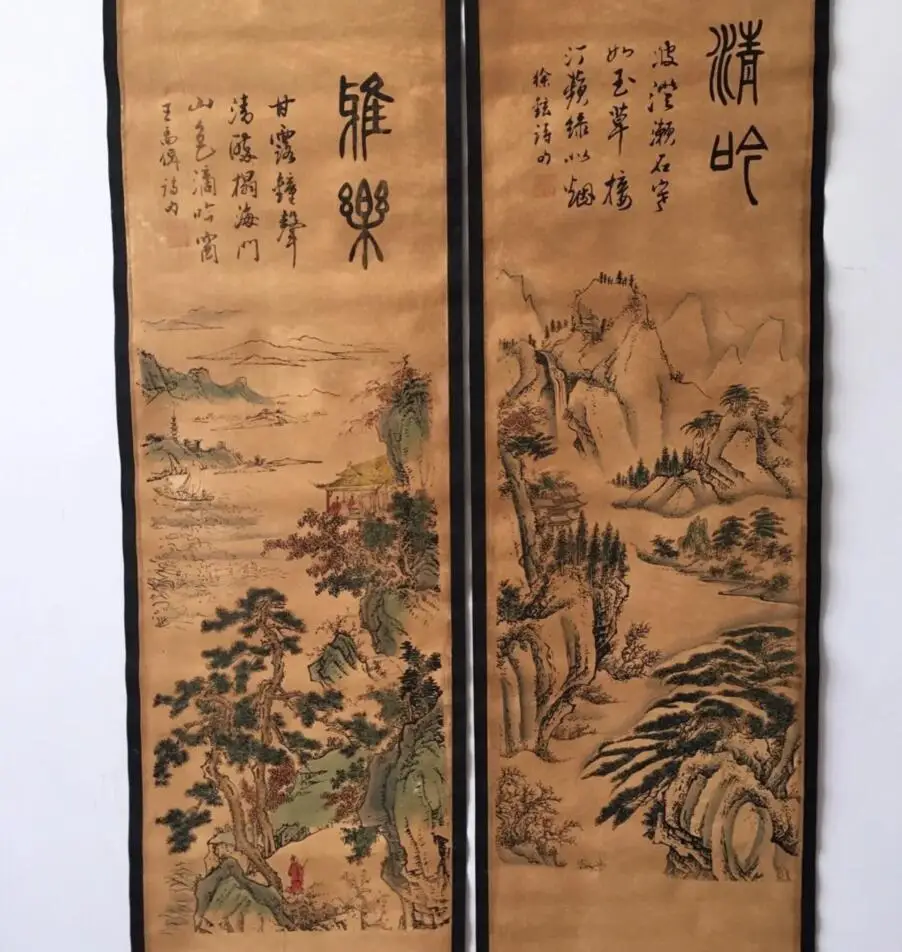 清吟
波澄瀨石寒
如玉草接
汀蘋綠似烟
徐鉉詩句
雅樂
甘露鐘聲
清醉榻海門
山色滴吟窗
王禹偁詩句